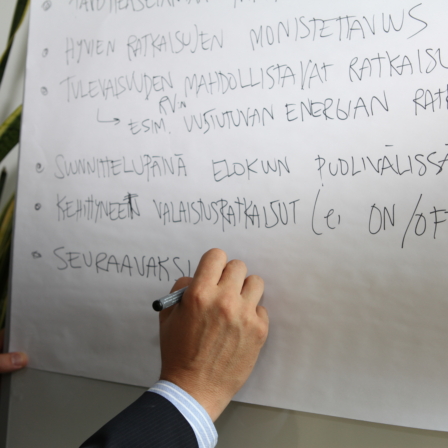 • HYVIEN RATKAISUJEN MONISTETTAVUUS
• TULEVAISUUDEN MAHDOLLISTAVAT RATKAISU
RV:N
↳ ESIM. UUSIUTUVAN ENERGIAN RAT
• SUUNNITTELUPÄIVÄ ELOKUUN PUOLIVÄLISSÄ
• KEHITTYNEET VALAISTUSRATKAISUT (ei ON/OF
• SEURAAVAKSI